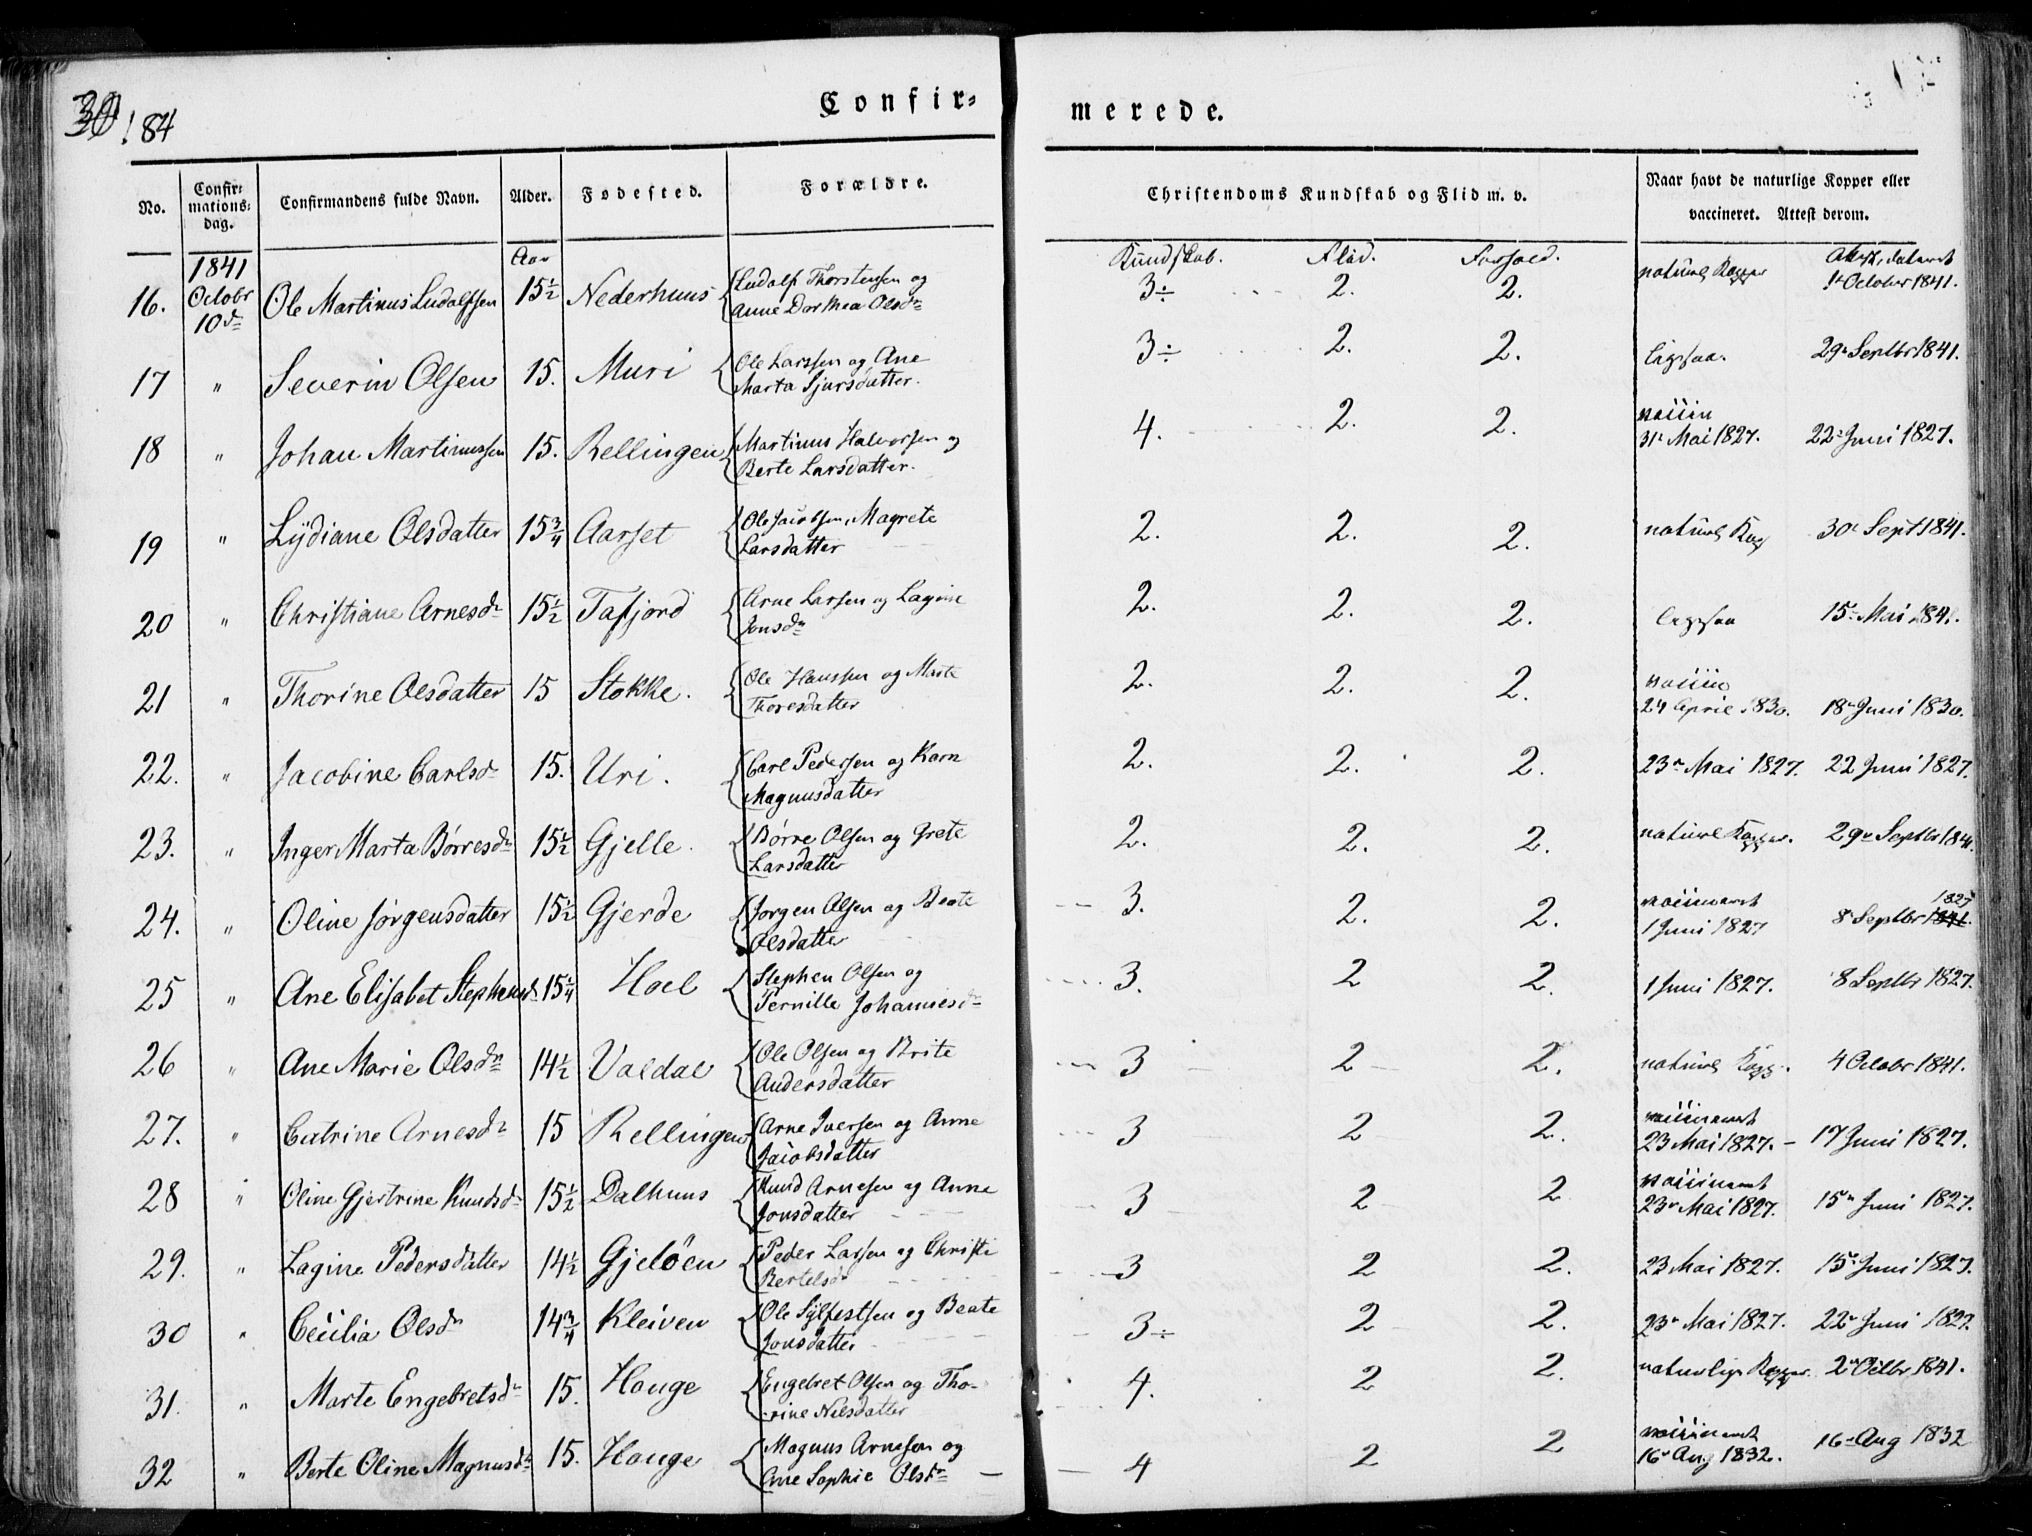 184
Confir= merede.
No. Confir= mations= dag. Confirmandens fulde Navn. Alder. Fødested. Forældre. Christendoms Kundskab og Flid m. v. Naar havt de naturlige Kopper eller vaccineret. Attest derom.
1841 Aar Kundskab. Flid. Forhold.
16. Octobr 10d Ole Martinus Ludolfsen 15½ Nederhuus Ludolf Thorstensen og Anne Dorthea Olsdr 3÷ 2. 2. naturl Kopper 1 October 1841.
17 " Severin Olsen 15. Muri Ole Larssen og Ane Marta Sjursdatter. 3÷ 2. 2. ligesaa. 29 Septbr 1841.
18 " Johan Martinussen 15. Rellingen Martinus Halvorsen og Berte Larsdatter. 4. 2. 2. vaccin 31 Mai 1827. 22 Juni 1827.
19 " Lÿdiane Olsdatter 15¾ Aarset Ole Jacobsen, Magrete Larsdatter 2. 2. 2. naturl Kop 30 Sept 1841.
20 " Christiane Arnesdr 15½ Tafjord Arne Larsen og Lagine Jonsdr 2. 2. 2. ligesaa 15 Mai 1841.
21 " Thorine Olsdatter 15 Stokke. Ole Hanssen og Marte Thoresdatter 2. 2. 2. vaccin 24 April 1830. 18 Juni 1830.
22. " Jacobine Carlsdr 15. Uri. Carl Pedersen og Karn Magnusdatter 2. 2. 2. 23 Mai 1827. 22 Juni 1827.
23. " Inger Marta Børresdr 15½ Gjelle. Børre Olsen og Grete Larsdatter 2. 2. 2. naturl Kopper. 29 Septbr 1841.
24. " Oline Jørgensdatter 15½ Gjerde Jørgen Olsen og Beate Olsdatter 3. 2. 2. vaccineret 1 Juni 1827 8 Septbr 1827
25 " Ane Elisabet Stephensd. 15¼ Hoel Stephen Olsen og Pernille Johannesdr 3. 2 2. 1 Juni 1827. 8 Septbr 1827.
26 " Ane Marie Olsdr 14½ Valdal Ole Olsen og Brite Andersdatter 3 2 2. naturl Kopp. 4 Octobr 1841.
27. " Catrine Arnesdr 15 Rellingen Arne Iversen og Anne Jacobsdatter 3 2 2. vaccineret 23 Mai 1827. 17 Juni 1827.
28 " Oline Gjertrine Knudsdr 15½ Dalhuus Knud Arnesen og Anne Jonsdatter 3 2 2 vaccineret 23 Mai 1827. 15 Juni 1827.
29. " Lagine Pedersdatter 14½ Gjeløen Peder Larsen og Christi Bertelsdr 3 2 2. 23 Mai 1827. 15 Juni 1827.
30 " Cecilia Olsdr 14¾ Kleiven Ole Sÿlfestsen og Beate Jonsdatter 3÷ 2 2. 23 Mai 1827. 22 Juni 1827.
31. " Marte Engebretsdr 15. Houge Engebret Olsen og Tho-rine Nilsdatter 4. 2 2. naturlige Kopper. 2 Octbr 1841.
32 " Berte Oline Magnusdr 15. Houge Magnus Arnesen og Ane Sophie Olsdr 4 2 2 vaccineret 16 Aug 1832. 16 Aug 1832